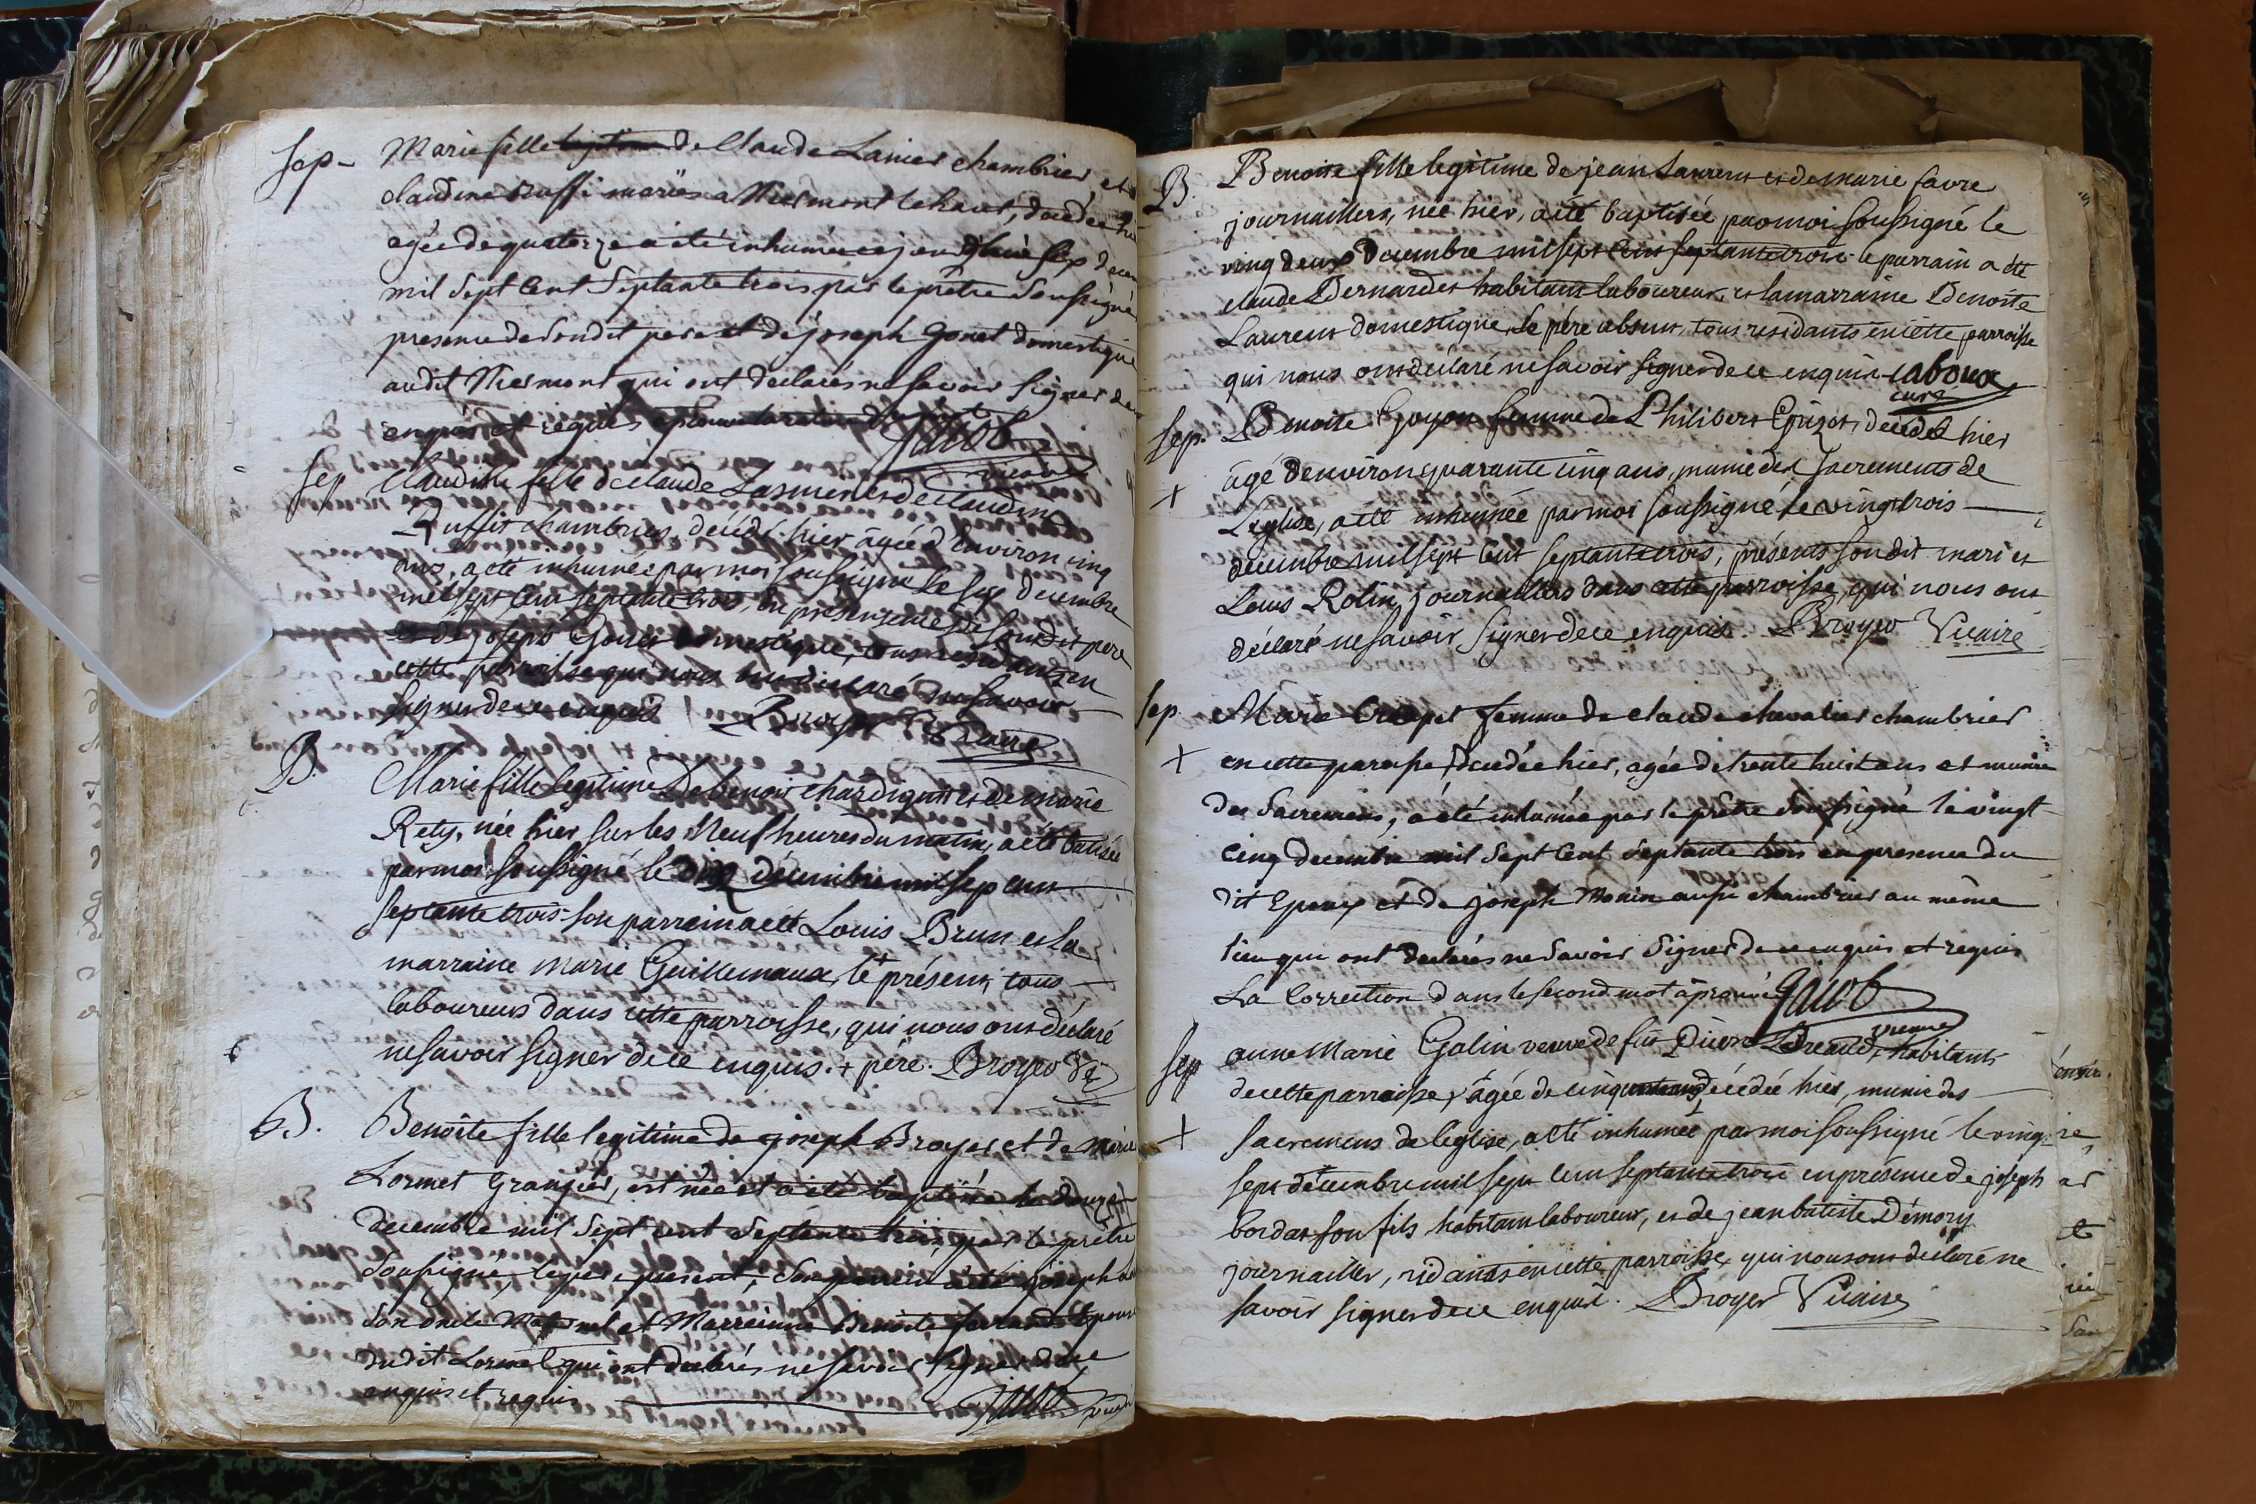 Sep- Marie fille legitime de Claude Lanier chambrier et
claudine Ruffi mariés a Miermont le haut, décédée hier
agée de quatorze a été inhumée ce jourdhui six decem
mil sept cent septante trois par le prêtre soussigné
presence de sondit pere et de joseph Gonet domestique
audit Miermont qui ont déclarés ne savoir signer de
enquis et requis Jacob
vicaire
Sep Claudine fille de claude Lasnier et de claudine
Ruffit chambriers, décédé hier âgée d'environ cinq
ans, a été inhumée par moi soussigné le six decembre
mil sept cent septante trois, en présence de sondit pere
et de joseph Gonet domestique, tous residants en
cette parroisse qui nous ont déclaré ne savoir
signer de ce enquis Broyer Vicaire
B. Marie fille legitime de benoit chardignit et de marie
Rety, née hier sur les Neuf heures du matin, a été batisée
par moi soussigné le dix décembre mil sept cent
septante trois son parrein a été Louis Brun et la
marraine marie Guillemaux, le + présent, tous
laboureurs dans cette parroisse, qui nous ont déclaré
ne savoir signer de ce enquis. + père. Broyer Vic
B. Benoîte fille legitime de joseph Broyer et de Marie
Lormet Granger, est née et a été baptisée le douze
decembre mil sept cent septante trois par le prêtre
soussigné, le pere present, son parrein a été joseph
son oncle Maternel et Marreinne Benoîte ferrand Epouse
dudit Lormet qui ont declarés ne savoir signer de ce
enquis et requis Jacob vicaire
B. Benoite fille legitime de jean Laurent et de marie favre
journailliers, née hier, a été baptisée par moi soussigné le
vingt deux decembre mil sept cent septante trois le parrain a été
claude Bernardet habitant laboureur, et la marraine Benoite
Laurent domestique, le père absent, tous residants en cette parroisse
qui nous ont déclaré ne savoir signer de ce enquis Laboux
curé
Sep. Benoite Goyon femme de Philibert Grizot, décédé hier
+ âgé d'environ quarante cinq ans, munie des sacrements de
L'eglise, a été inhumée par moi soussigné le vingt trois
decembre mil sept cent septante trois, présents sondit mari et
Louis Rolin, journailliers dans cette parroisse, qui nous ont
déclaré ne savoir signer de ce enquis. Broyer Vicaire
Sep. Marie Crepet femme de claude chevalier chambrier
+ en cette paroisse, décédée hier, agée de trente huit ans et munie
des Sacremens, a été inhumée par le prêtre soussigné le vingt
cinq decembre mil sept cent septante trois en presence du
dit Epoux et de joseph Monin aussi chambrier au même
lieu qui ont declarés ne savoir signer de ce enquis et requis
La Correction dans le second mot aprouvée Jacob
vicaire
Sep anne Marie Galin veuve de fut Pierre Bordat, habitants
de cette parroisse, + âgée de cinquante ans décédée hier, munie des
environ
+ sacremens de leglise, a été inhumée par moi soussigné le vingt
sept decembre mil sept cent septante trois en présence de joseph
bordat son fils habitant laboureur, et de jean batiste Démory
journailler, residants en cette parroisse, qui nous ont déclaré ne
savoir signer de ce enquis. Broyer Vicaire